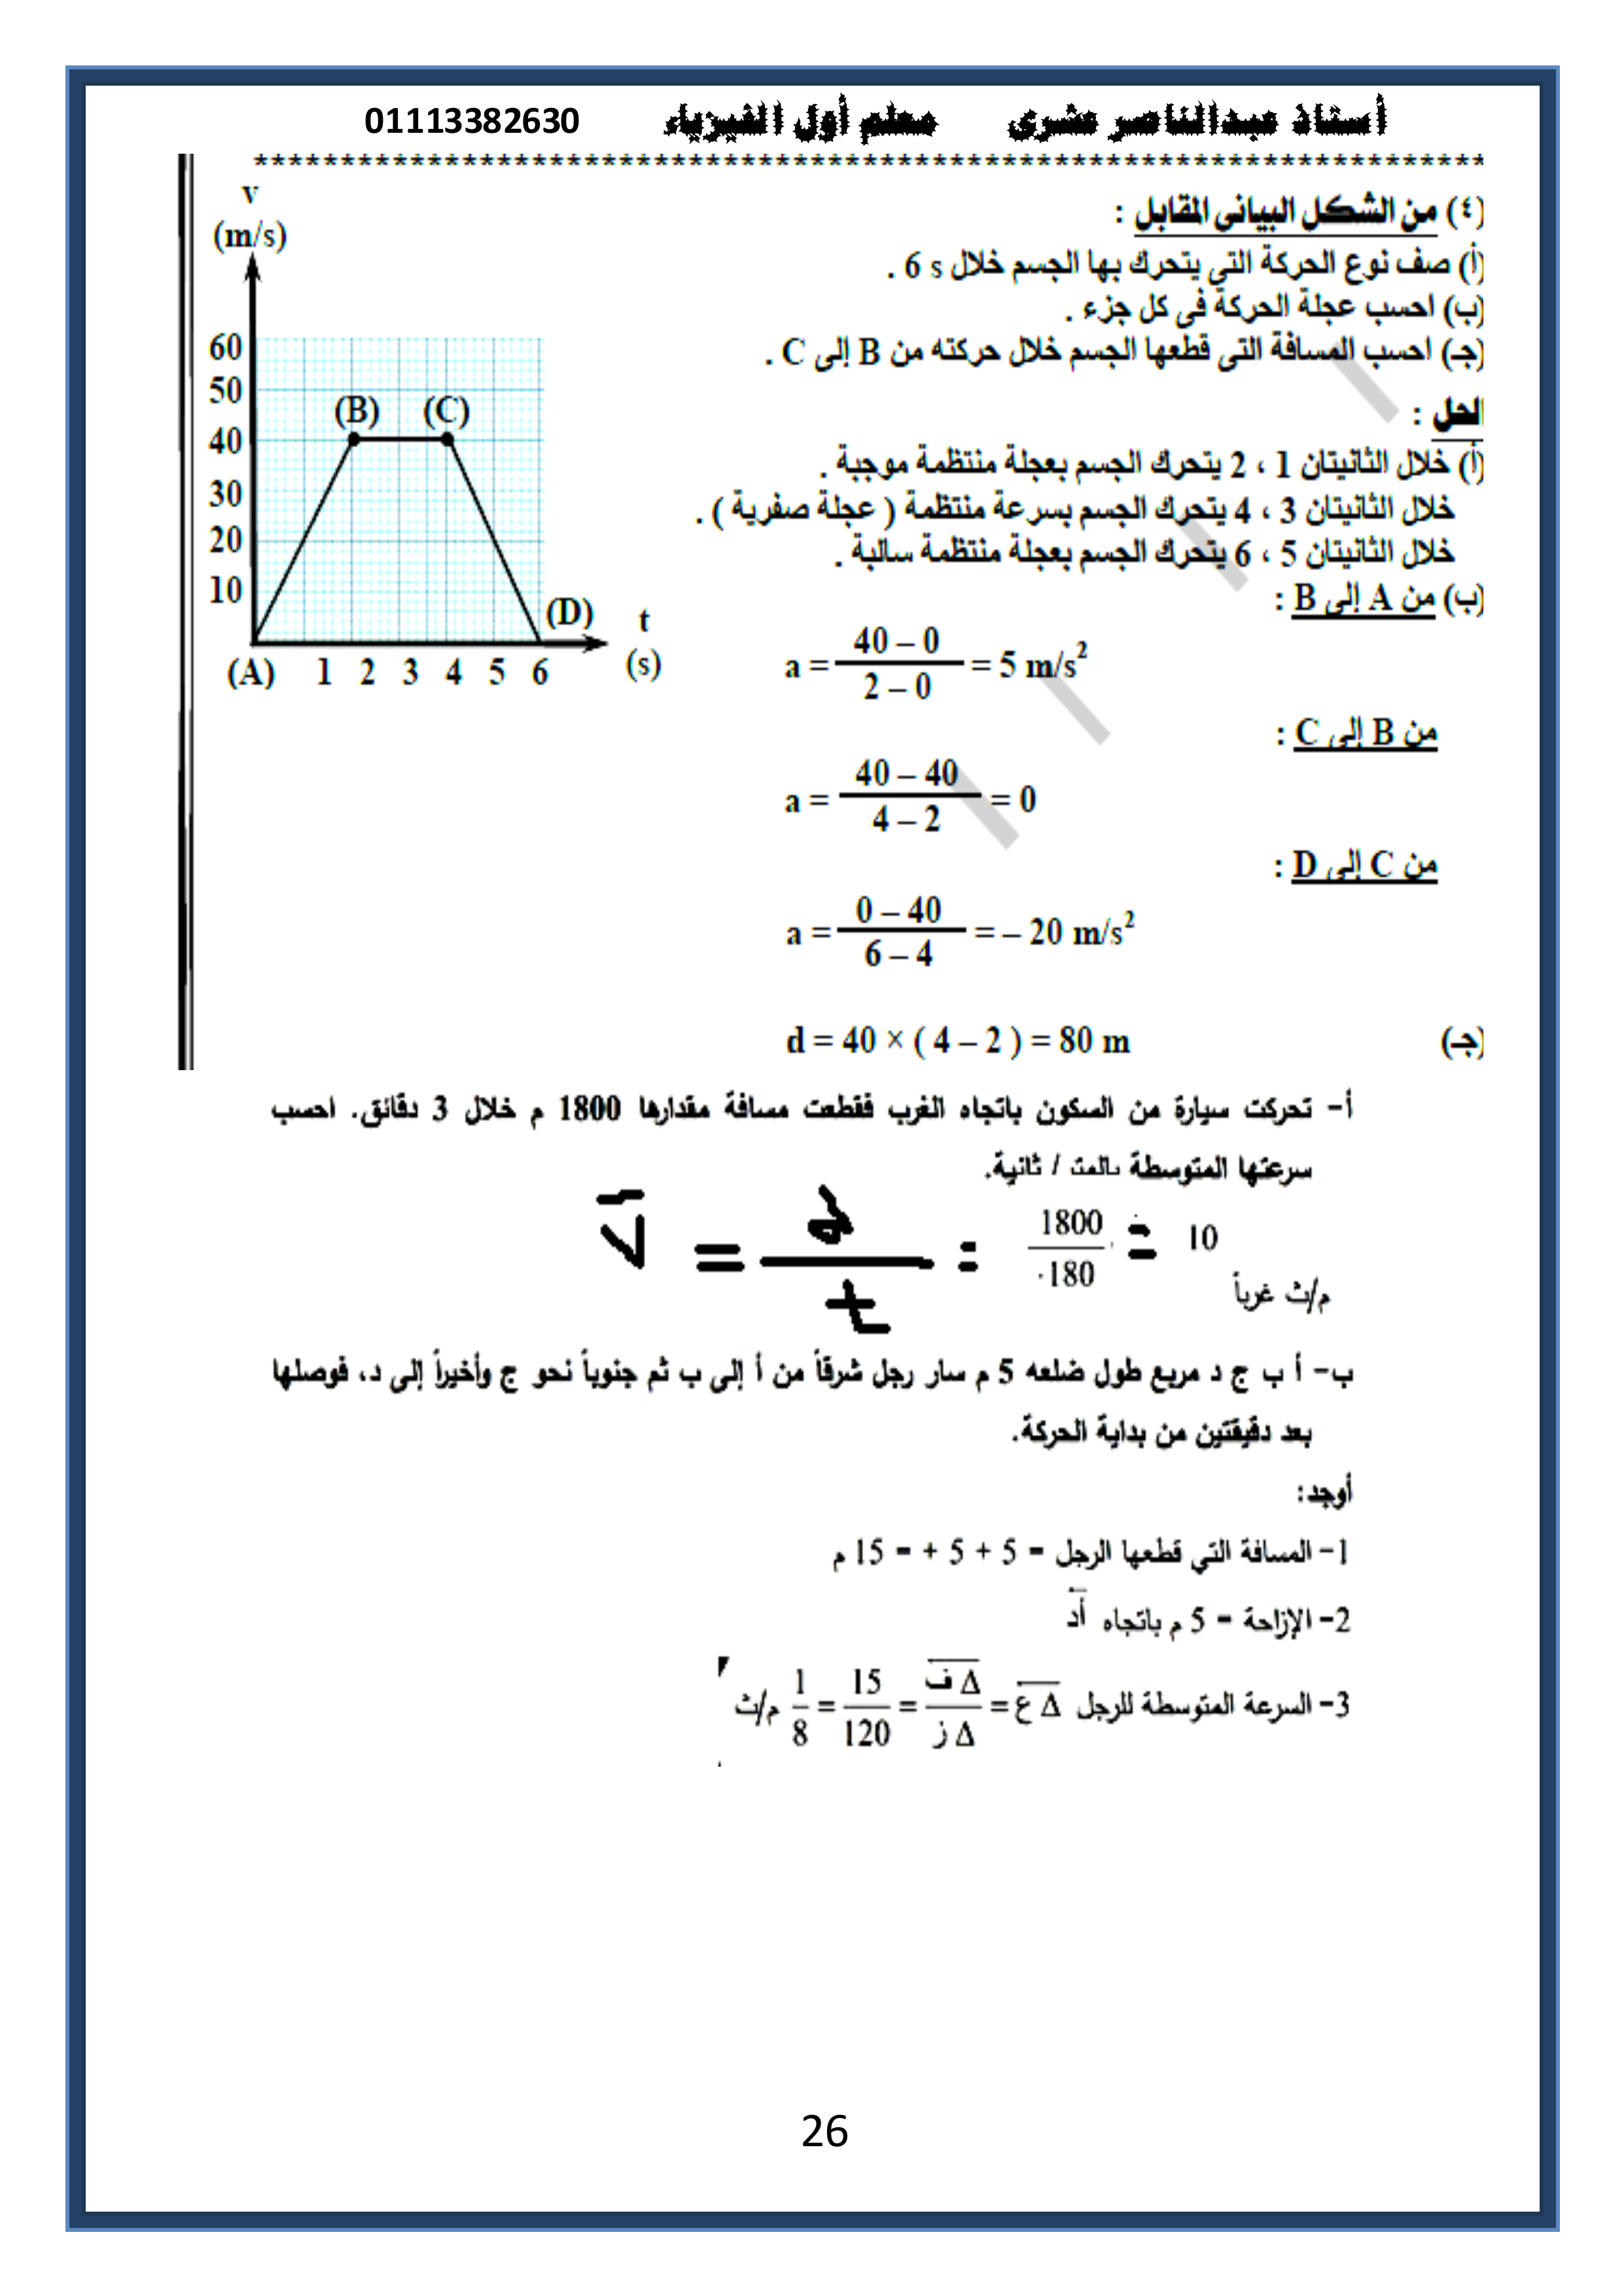 أستاذ عبدالناصر عشرى معلم أول الفيزياء 01113382630
**********************************************************************
(٤) من الشكل البيانى المقابل :
(أ) صف نوع الحركة التى يتحرك بها الجسم خلال 6 s .
(ب) احسب عجلة الحركة فى كل جزء .
(جـ) احسب المسافة التى قطعها الجسم خلال حركته من B إلى C .
v
(m/s)
60
50
40
30
20
10
(B) (C)
(D)
(A) 1 2 3 4 5 6
t
(s)
الحل :
(أ) خلال الثانيتان 1 ، 2 يتحرك الجسم بعجلة منتظمة موجبة .
خلال الثانيتان 3 ، 4 يتحرك الجسم بسرعة منتظمة ( عجلة صفرية ) .
خلال الثانيتان 5 ، 6 يتحرك الجسم بعجلة منتظمة سالبة .
(ب) من A إلى B :
a = (40 – 0) / (2 – 0) = 5 m/s²
من B إلى C :
a = (40 – 40) / (4 – 2) = 0
من C إلى D :
a = (0 – 40) / (6 – 4) = – 20 m/s²
(جـ) d = 40 × ( 4 – 2 ) = 80 m
أ- تحركت سيارة من السكون باتجاه الغرب فقطعت مسافة مقدارها 1800 م خلال 3 دقائق. احسب
سرعتها المتوسطة بالمتر / ثانية.
V̄ = d / t = 1800 / 180 = 10
م/ث غرباً
ب- أ ب ج د مربع طول ضلعه 5 م سار رجل شرقاً من أ إلى ب ثم جنوباً نحو ج وأخيراً إلى د، فوصلها
بعد دقيقتين من بداية الحركة.
أوجد:
1- المسافة التي قطعها الرجل = 5 + 5 + = 15 م
2- الإزاحة = 5 م باتجاه أد
3- السرعة المتوسطة للرجل Δ ع = Δ ف / Δ ز = 15 / 120 = 1 / 8 م/ث
26